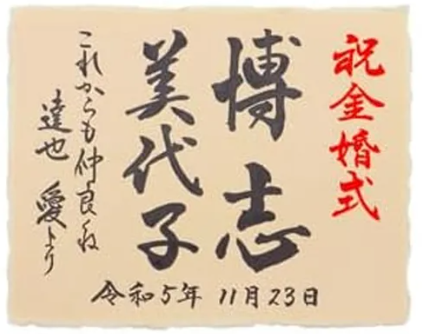 祝金婚式
博志
美代子
これからも仲良くね
達也 愛より
令和5年 11月23日